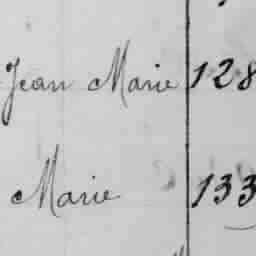 Jean Marie 128
Marie 133